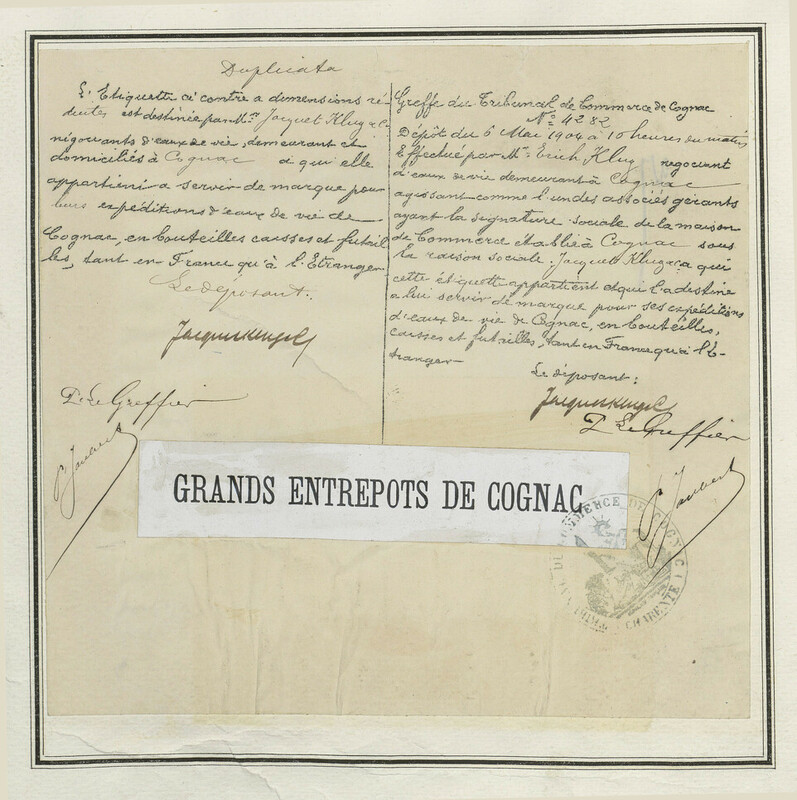 Duplicata
L'Etiquette ci contre a dimensions ré-
duites est destinée par Mrs Jacquet Klug & Co
négociants d'eaux de vie, demeurant et
domiciliés à Cognac à qui elle
appartient a servir de marque pour
leurs expéditions d'eaux de vie de
Cognac, en bouteilles caisses et futail
les, tant en France qu'à l'Etranger
Le déposant.
P. Le Greffier
P. Jaubert
Greffe du Tribunal de Commerce de Cognac
No 4282
Dépôt du 6 Mai 1904 à 10 heures du matin
Effectué par Mr Erich Klug négociant
d'eaux de vie demeurant à Cognac
agissant comme l'un des associés gérants
ayant la signature sociale de la maison
de Commerce établie à Cognac sous
la raison sociale: Jacquet Klug & Co a qui
cette étiquette appartient et qui l'a destine
a lui servir de marque pour ses expéditions
d'eaux de vie de Cognac, en bouteilles,
caisses et futailles, tant en France qu'à l'E-
tranger
Le déposant:
P. Le Greffier
P. Jaubert
GRANDS ENTREPOTS DE COGNAC
COMMERCE DE COGNAC
CHARENTE